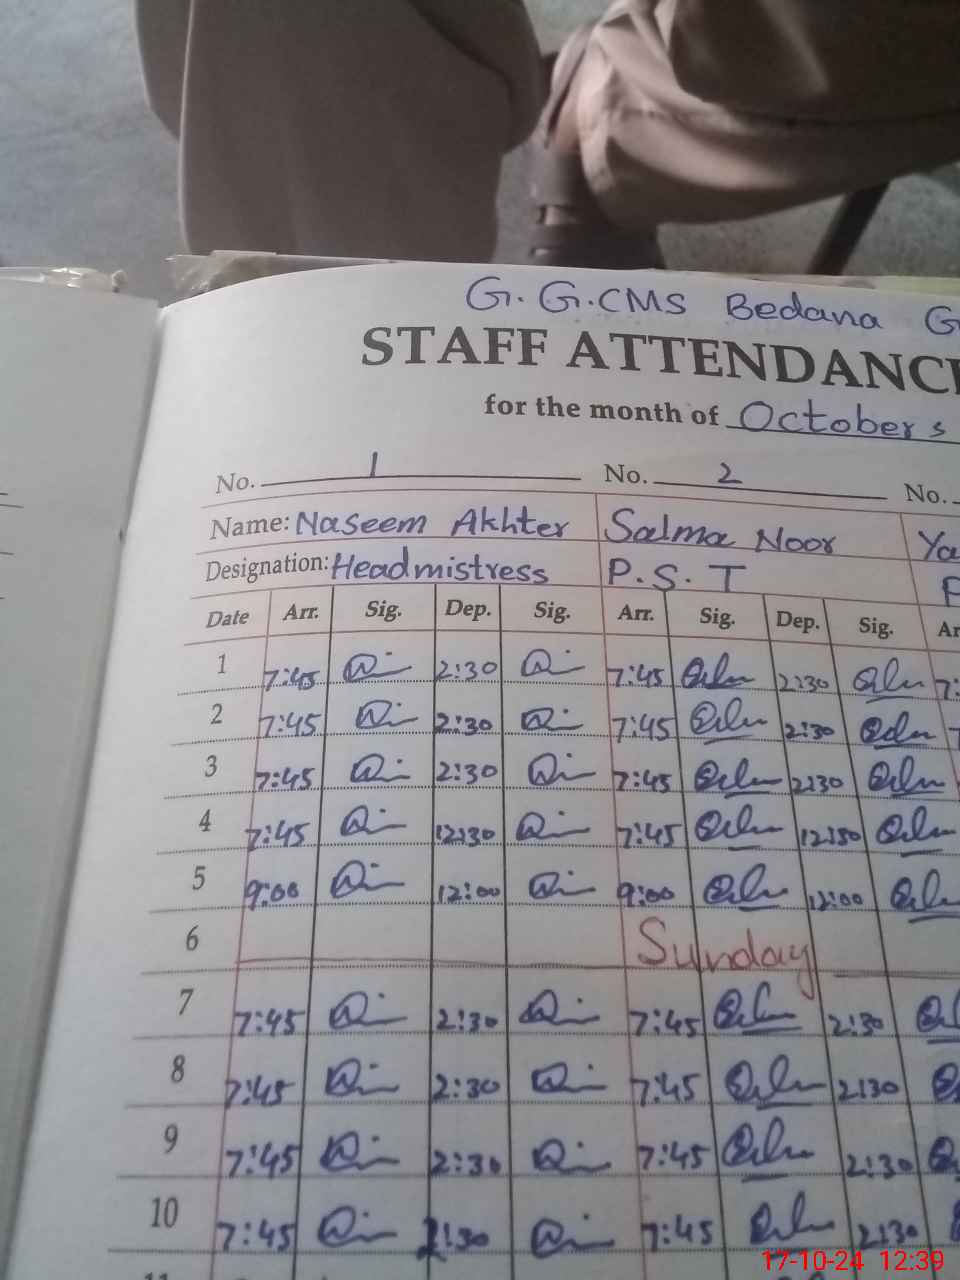 G. G.CMS Bedana G
STAFF ATTENDANCE
for the month of October s
No. 1 No. 2 No.
Name: Naseem Akhter Salma Noor Ya
Designation: Headmistress P.S.T P
Date Arr. Sig. Dep. Sig. Arr. Sig. Dep. Sig. Ar
1 7:45 2:30 7:45 2:30 7:
2 7:45 2:30 7:45 2:30
3 7:45 2:30 7:45 2:30
4 7:45 12:30 7:45 12:30
5 9:00 12:00 9:00 12:00
6 Sunday
7 7:45 2:30 7:45 2:30
8 7:45 2:30 7:45 2:30
9 7:45 2:30 7:45 2:30
10 7:45 2:30 7:45 2:30
17-10-24 12:39